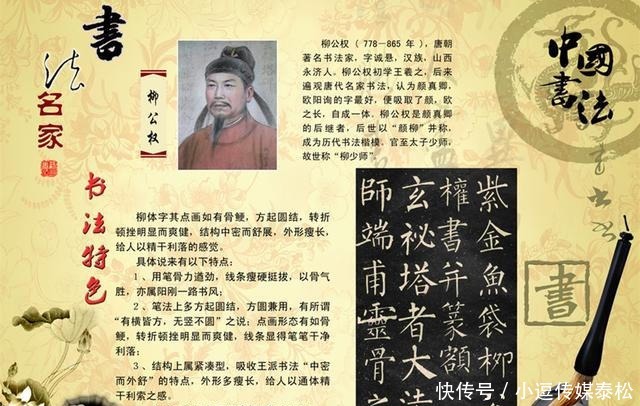 書法名家
【柳公权】
柳公权（778—865 年），唐朝
著名书法家，字诚悬，汉族，山西
永济人。柳公权初学王羲之，后来
遍观唐代名家书法，认为颜真卿，
欧阳询的字最好，便吸取了颜，欧
之长，自成一体。柳公权是颜真卿
的后继者，后世以“颜柳”并称，
成为历代书法楷模。官至太子少师，
故世称“柳少师”。
中國書法
书法特色
柳体字其点画如有骨鲠，方起圆结，转折
顿挫明显而爽健，结构中密而舒展，外形瘦长，
给人以精干利落的感觉。
具体说来有以下特点：
1、用笔骨力遒劲，线条瘦硬挺拔，以骨气
胜，亦属阳刚一路书风；
2、笔法上多方起圆结，方圆兼用，有所谓
“有横皆方，无竖不圆”之说；点画形态有如骨
鲠，转折、顿挫明显而爽健，线条显得笔笔干净
利落；
3、结构上属紧凑型，吸收王派书法“中密
而外舒”的特点，外形多瘦长，给人以通体精
干利索之感。
紫金魚袋柳
權書并篆額
玄祕塔者大法
師端甫靈骨之
書
快传号／小逗传媒泰松